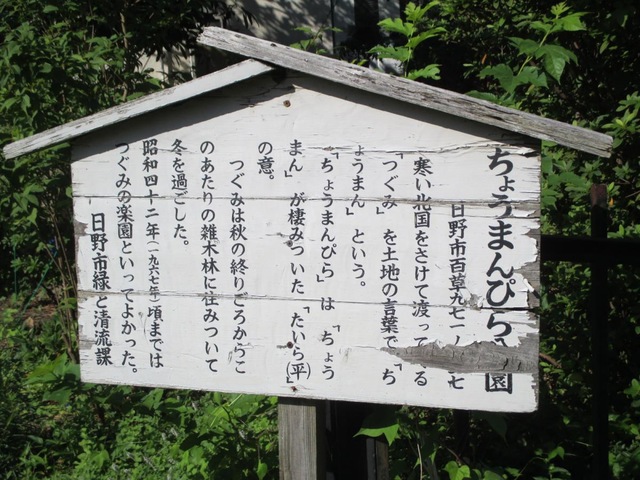 ちょうまんぴら 園
日野市百草九七一ノ 七
寒い北国をさけて渡って る
「つぐみ」を土地の言葉で「ち
ょうまん」という。
「ちょうまんぴら」は「ちょう
まん」が棲みついた「たいら(平)」
の意。
つぐみは秋の終りごろからこ
のあたりの雑木林に住みついて
冬を過ごした。
昭和四十二年(一九六七年)頃までは
つぐみの楽園といってよかった。
日野市緑と清流課